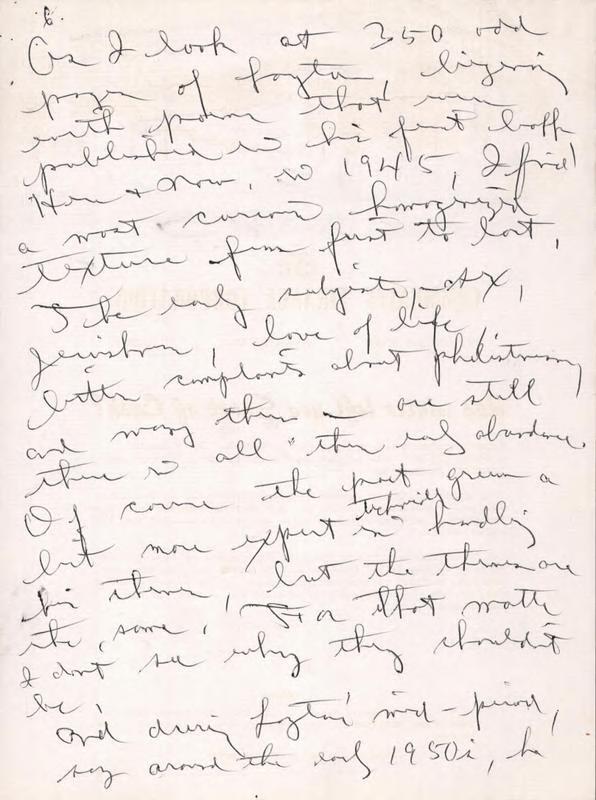 6
As I look at 350 odd
pages of Layton, beginning
with poems that were
published in his first book
Here & Now, in 1945, I find
a most curious homogenized
texture from first to last,
The early subjects — sex,
Jewishness, love of life,
bitter complaints about philistinism,
and many others — are still
there in all their early abundance.
Of course the poet grew a
bit more expert technically in handling
his themes, but the themes are
the same. For that matter
I don't see why they shouldn't
be.
And during Layton's mid-period,
say around the early 1950s, he